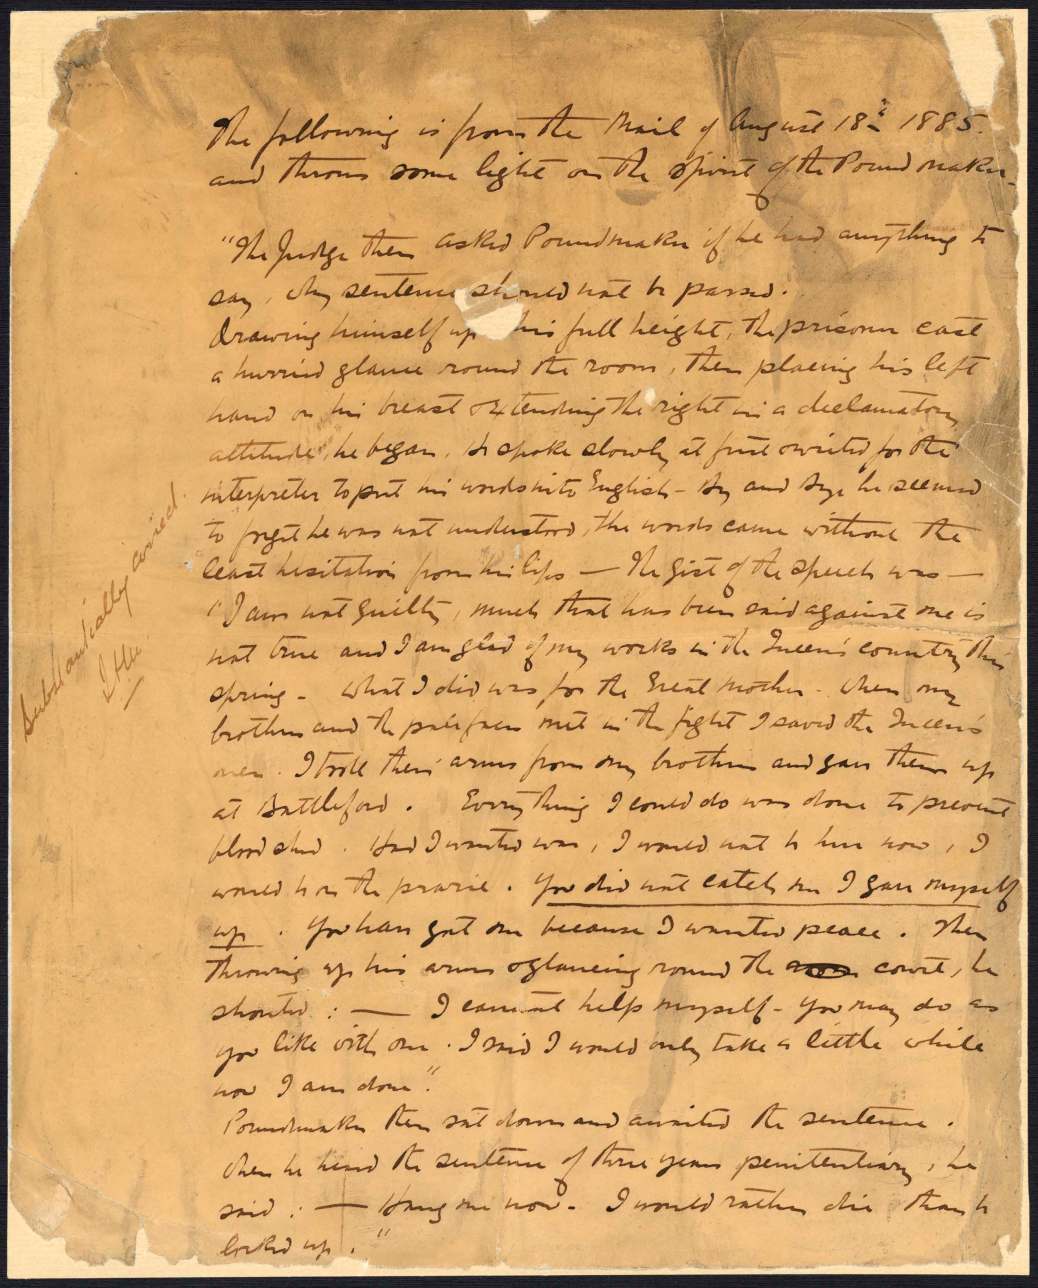 The following is from the Mail of August 18th 1885.
and throws some light on the spirit of the Poundmaker.
"The Judge then asked Poundmaker if he had anything to
say, why sentence should not be passed.
Drawing himself up his full height, the prisoner cast
a hurried glance round the room, then placing his left
hand on his breast & extending the right in a declamatory
attitude, he began. He spoke slowly at first & waited for the
interpreter to put his words into English – By and bye he seemed
to forget he was not understood, the words came without the
least hesitation from his lips — The gist of the speech was —
"I am not guilty, much that has been said against me is
not true and I am glad of my works in the Queen's country this
spring – What I did was for the Great Mother – When my
brothers and the palefaces met in the fight I saved the Queen's
men. I took their arms from my brothers and gave them up
at Battleford. Everything I could do was done to prevent
bloodshed. Had I wanted war, I would not be here now, I
would be on the prairie. You did not catch me I gave myself
up. You have got me because I wanted peace. Then
throwing up his arms & glancing round the room court, he
shouted : — I cannot help myself – You may do as
you like with me. I said I would only take a little while
now I am done".
Poundmaker then sat down and awaited the sentence.
When he heard the sentence of three years penitentiary, he
said : — Hang me now – I would rather die than be
locked up."
Substantially correct.